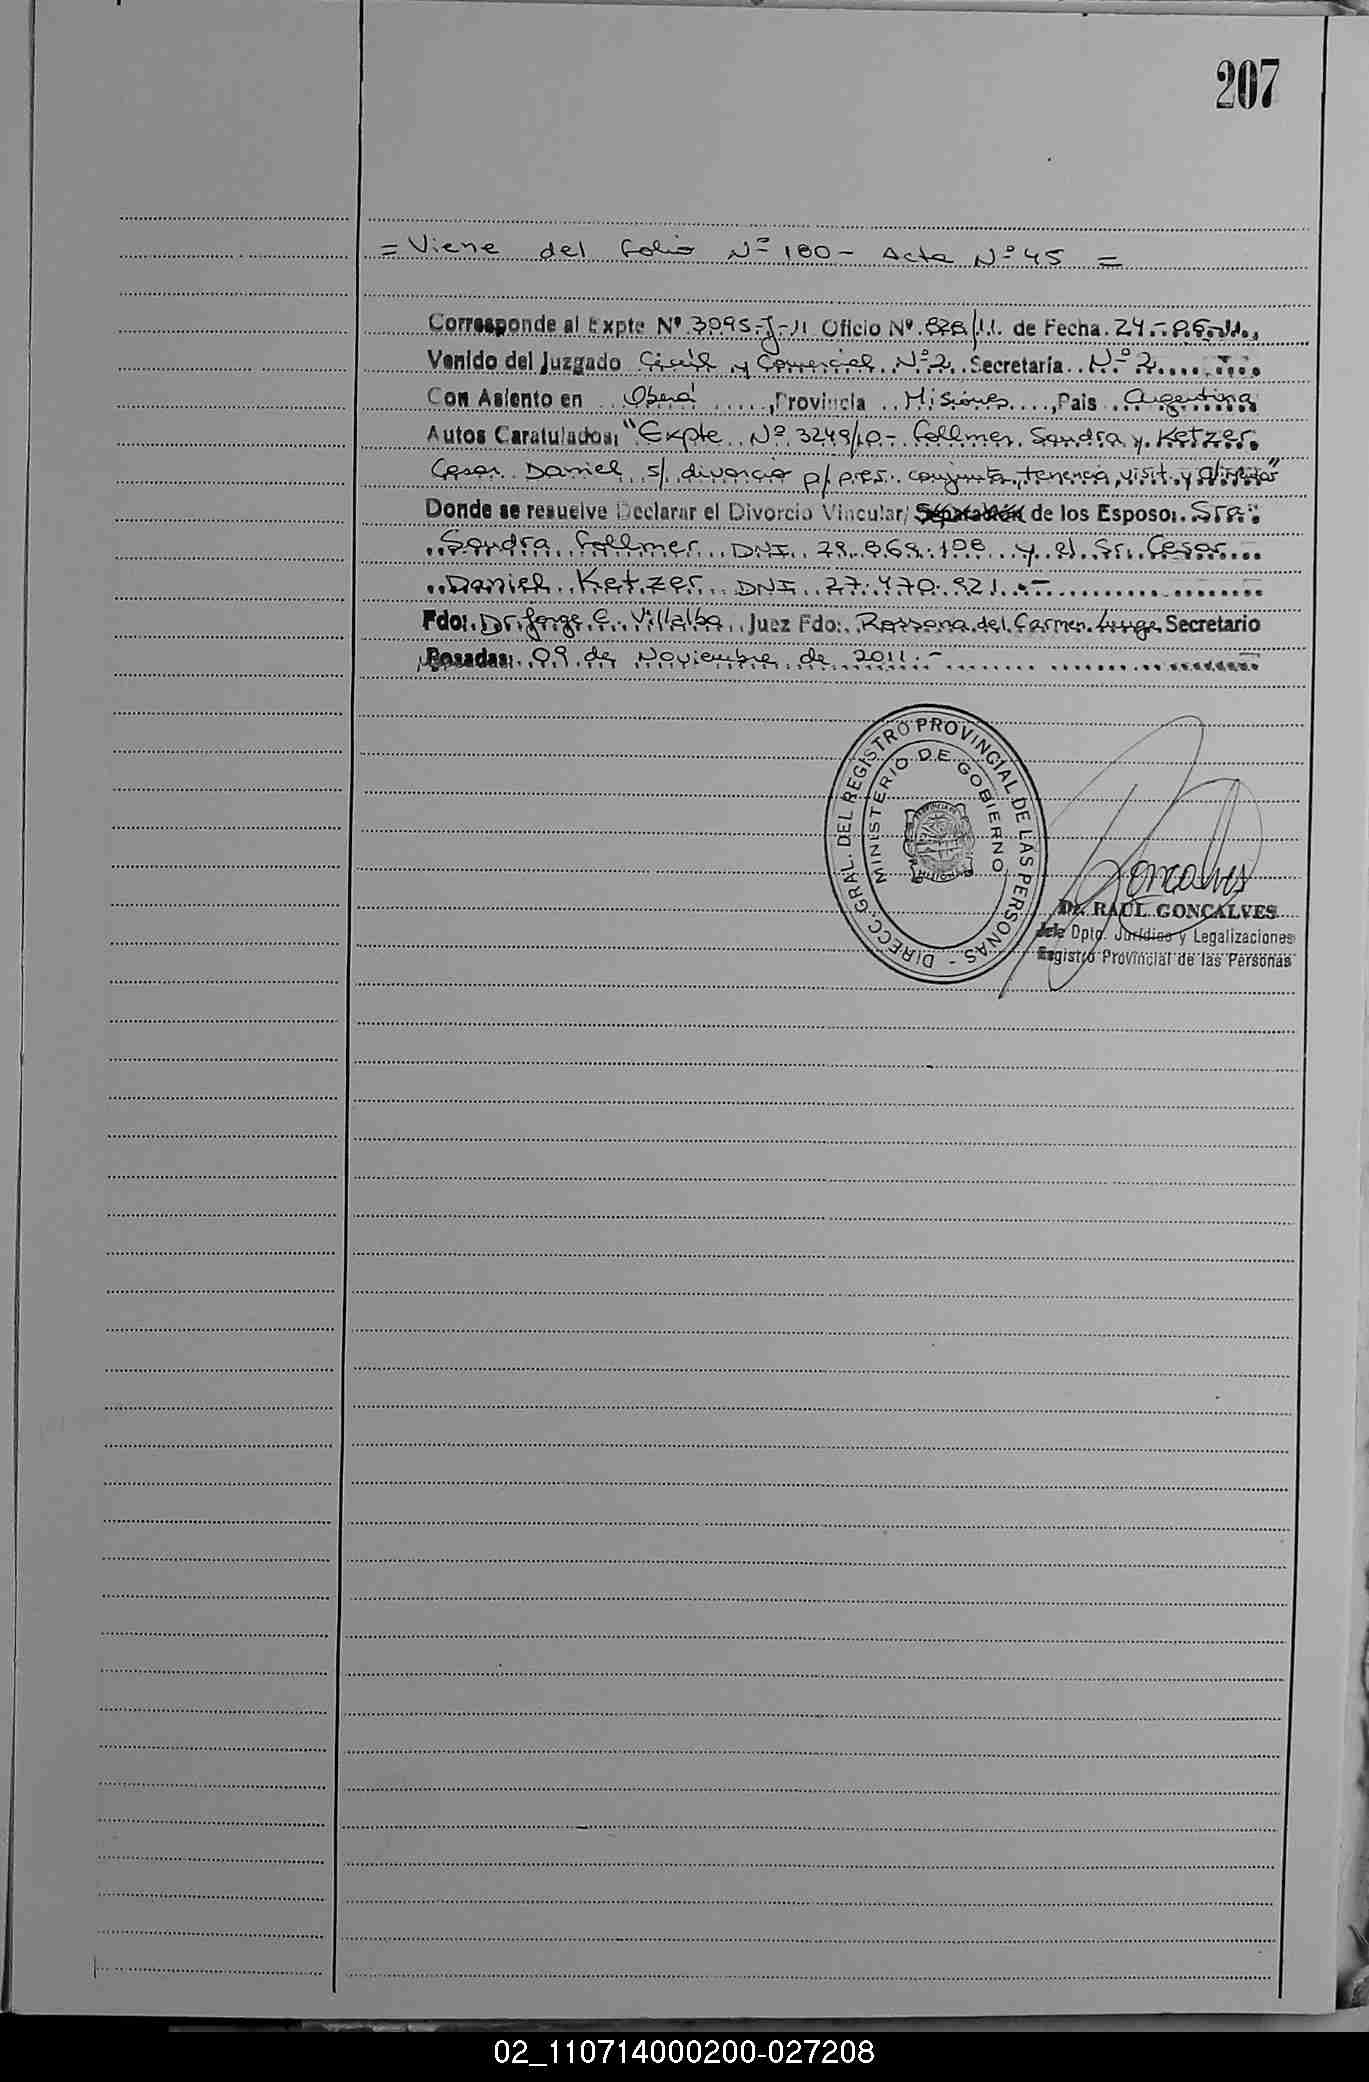 207
= Viene del Folio Nº 180 - Acta Nº 45 =
Corresponde al Expte Nº 3095-J-11 Oficio Nº 828/11. de Fecha 24-06-11.,
Venido del Juzgado Civil y Comercial Nº 2 Secretaría Nº 2
Con Asiento en Oberá, Provincia Misiones, Pais Argentina
Autos Caratulados: "Expte Nº 3249/10- Follmer Sandra y Ketzer
Cesar Daniel s/ divorcio p/ pres. conjunta, tenencia, visit. y
Donde se resuelve Declarar el Divorcio Vincular/ Separación de los Esposo: Sra.
Sandra Follmer DNI 28.868.108 y el Sr. Cesar
Daniel Ketzer DNI 27.470.821.-
Fdo: Dr. Jorge E. Villalba Juez Fdo: Rossana del Carmen Secretario
Posadas: 09 de Noviembre de 2011.-
DIRECC. GRAL. DEL REGISTRO PROVINCIAL DE LAS PERSONAS -
MINISTERIO DE GOBIERNO
Goncalves
Dr. RAUL GONCALVES
Jefe Dpto. Jurídico y Legalizaciones
Registro Provincial de las Personas
02_110714000200-027208